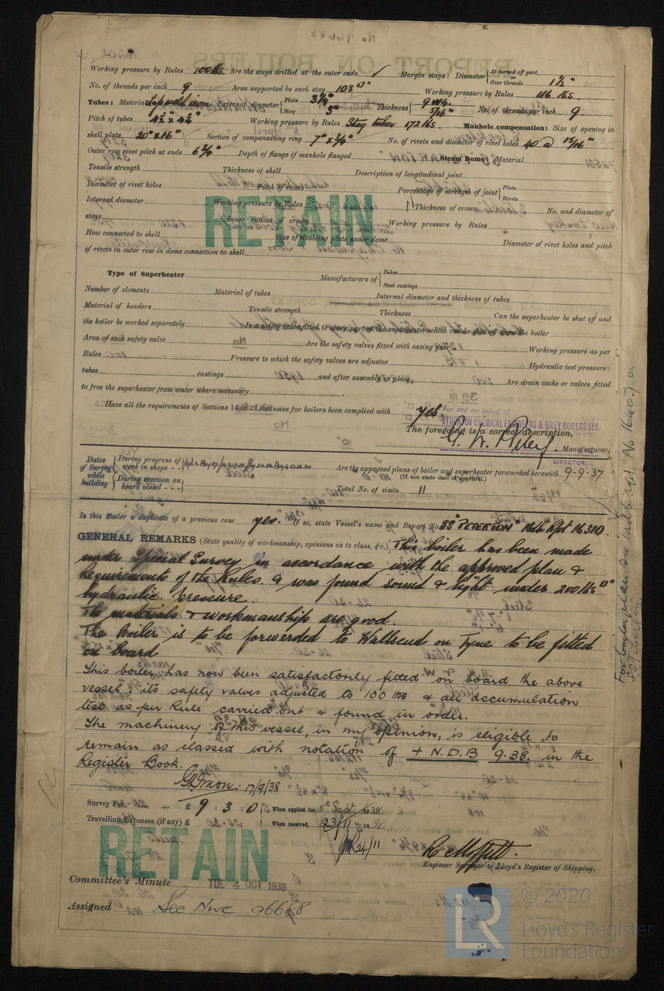 Working pressure by Rules 100 lbs. Are the stays drilled at the outer ends Margin stays: Diameter { At turned off part, Over threads 1 1/2"
No. of threads per inch 9 Area supported by each stay 108 □" Working pressure by Rules 116 lbs.
Tubes: Material Lapweld iron External diameter { Plain 3 1/4" Stay 3" Thickness { 9 wg. 5/16" No. of threads per inch 9.
Pitch of tubes Working pressure by Rules Stay tubes 172 lbs. Manhole compensation: Size of opening in
shell plate 20" x 16" Section of compensating ring 7" x 3/4" No. of rivets and diameter of rivet holes 40 @ 15/16"
Outer row rivet pitch at ends 6 3/4" Depth of flange if manhole flanged Steam Dome: Material
Tensile strength Thickness of shell Description of longitudinal joint
Diameter of rivet holes Pitch of rivets Percentage of strength of joint { Plate Rivets
Internal diameter Working pressure by Rules Thickness of crown No. and diameter of
stays Inner radius of crown Working pressure by Rules
How connected to shell Size of doubling plate under dome Diameter of rivet holes and pitch
of rivets in outer row in dome connection to shell
RETAIN
Type of Superheater Manufacturers of { Tubes Steel castings
Number of elements Material of tubes Internal diameter and thickness of tubes
Material of headers Tensile strength Thickness Can the superheater be shut off and
the boiler be worked separately Is a safety valve fitted to every part of the superheater which can be shut off from the boiler
Area of each safety valve Are the safety valves fitted with easing gear Working pressure as per
Rules Pressure to which the safety valves are adjusted Hydraulic test pressure:
tubes castings and after assembly in place Are drain cocks or valves fitted
to free the superheater from water where necessary
Have all the requirements of Sections 14 to 22 inclusive for boilers been complied with yes
For and on behalf of
STOCKTON CHEMICAL ENGINEERS & RILEY BOILERS LTD.
The foregoing is a correct description,
G. W. Riley Manufacturer.
DIRECTOR.
Dates of Survey while building { During progress of work in shops - - During erection on board vessel - - -
Are the approved plans of boiler and superheater forwarded herewith 9-9-37
(If not state date of approval.)
Total No. of visits 11
Is this Boiler a duplicate of a previous case yes. If so, state Vessel's name and Report No. SS "PETERTON" Mdb Rpt 16310.
GENERAL REMARKS (State quality of workmanship, opinions as to class, &c.) This boiler has been made
under Special Survey in accordance with the approved plan &
Requirements of the Rules. & was found sound & tight under 200 lbs □"
hydraulic pressure.
The materials & workmanship are good.
The Boiler is to be forwarded to Wallsend on Tyne to be fitted
on board
This boiler has now been satisfactorily fitted on board the above
vessel: its safety valves adjusted to 100 lbs & an accumulation
test as per Rule carried out & found in order.
The machinery of this vessel, in my opinion, is eligible to
remain as classed with notation of + N.D.B 9.38. in the
Register Book.
17/9/38
For boiler plan see
Survey Fee ... ... £ 9 : 3 : 0 When applied for, Sept 1938
Travelling Expenses (if any) £ When received, 23/11 1938
24/11
RETAIN
C. Moffett.
Engineer Surveyor to Lloyd's Register of Shipping.
Committee's Minute TUE 4 OCT 1938
Assigned See Nwc 96668
© 2020
LR
Lloyd's Register
Foundation